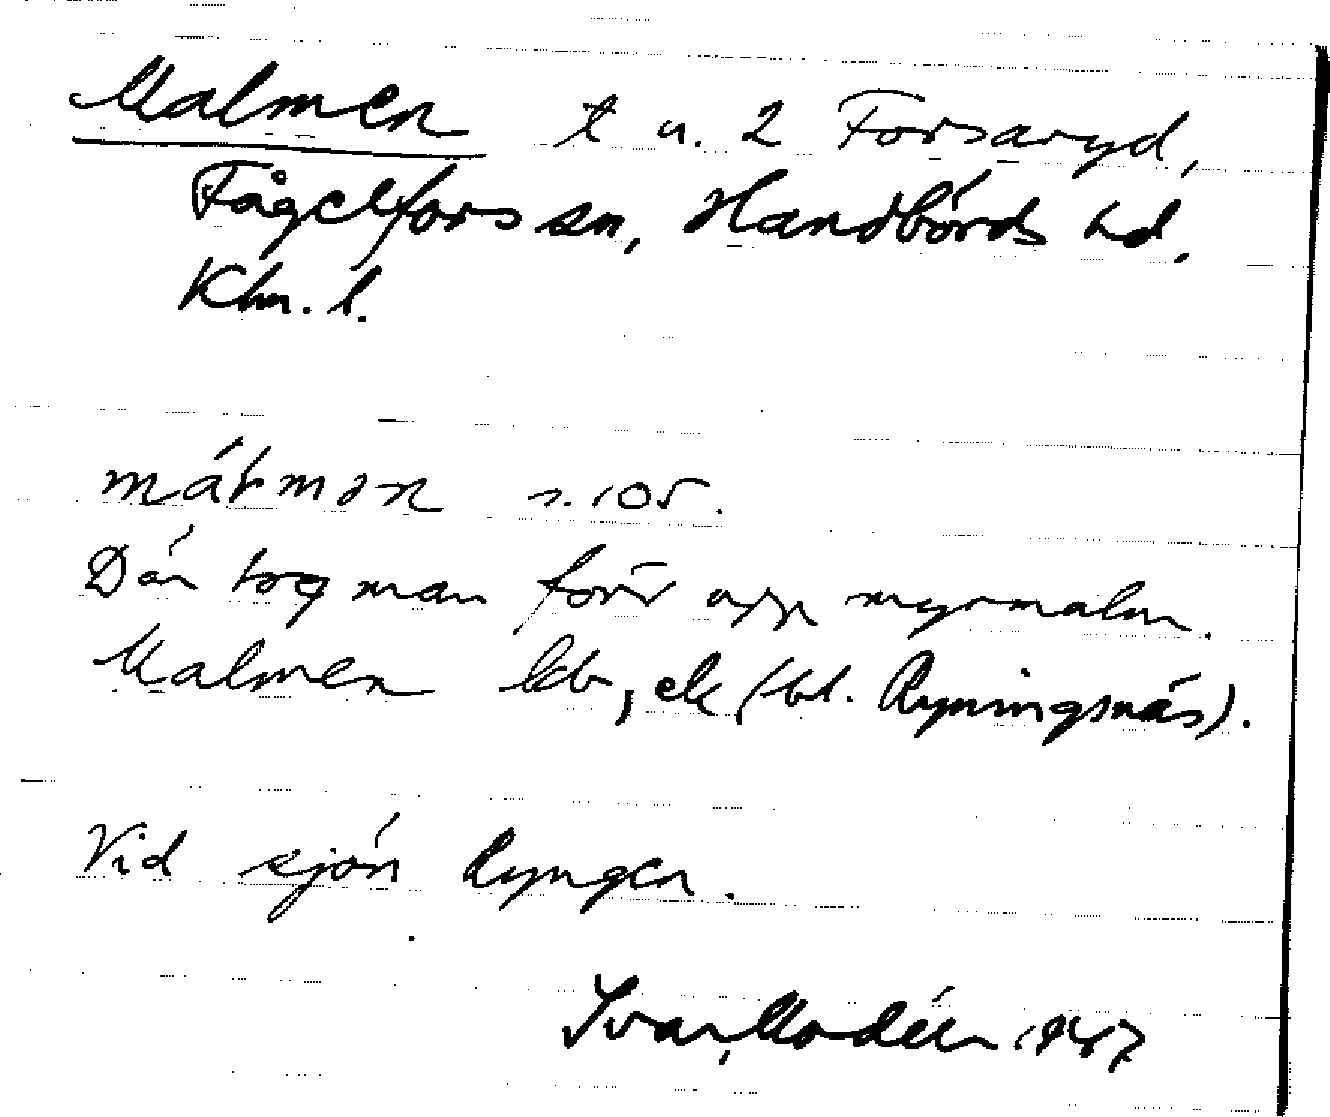 Malmen t u. 2 Forsaryd,
Fågelfors sn, Handbörds hd.
Klm. l.
n. 105.
Där tog man förr upp myrmalm.
Malmen ldt, ek (bl. Ryningsnäs).
Vid sjön Ryngen.
Ivar Modéer 1947